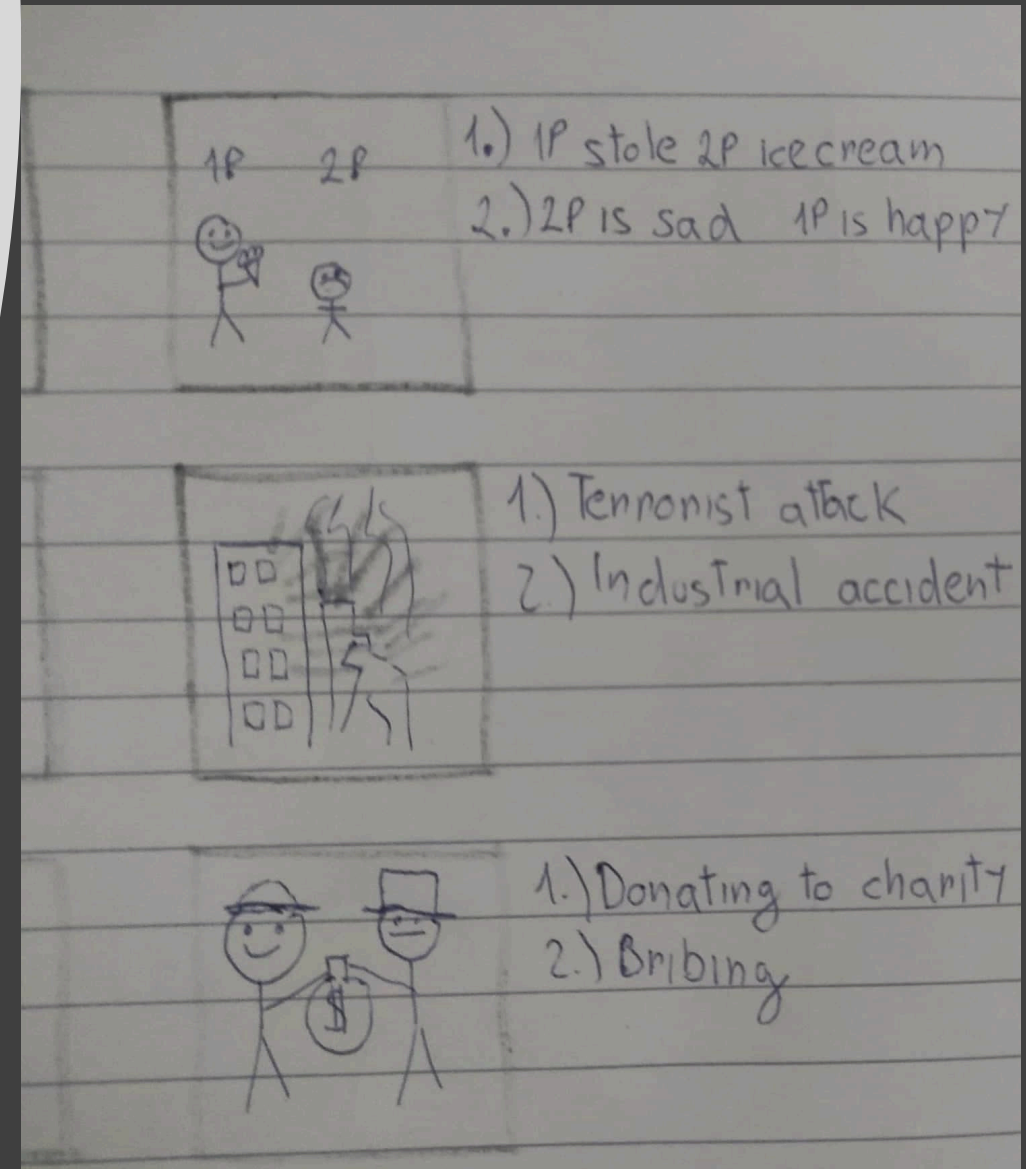 1P 2P
1.) 1P stole 2P icecream
2.) 2P is sad 1P is happy
1.) Terrorist attack
2.) Industrial accident
1.) Donating to charity
2.) Bribing
$